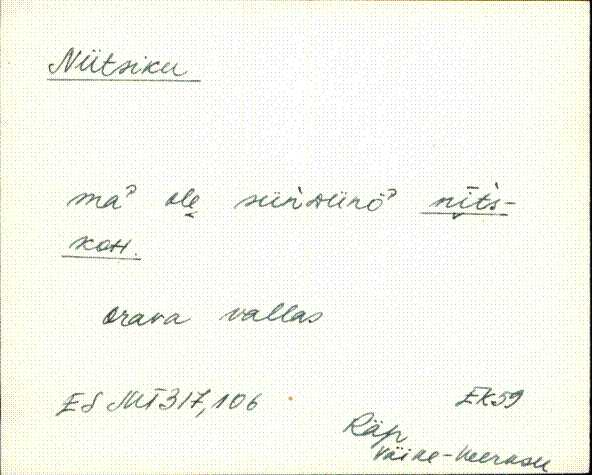 Niitsiku
maʾ ole̬ süńDünöʾ nīt́s-
koH.
Orava vallas
ES MT 317, 106
EK59
Räp
Väike-Veerksu